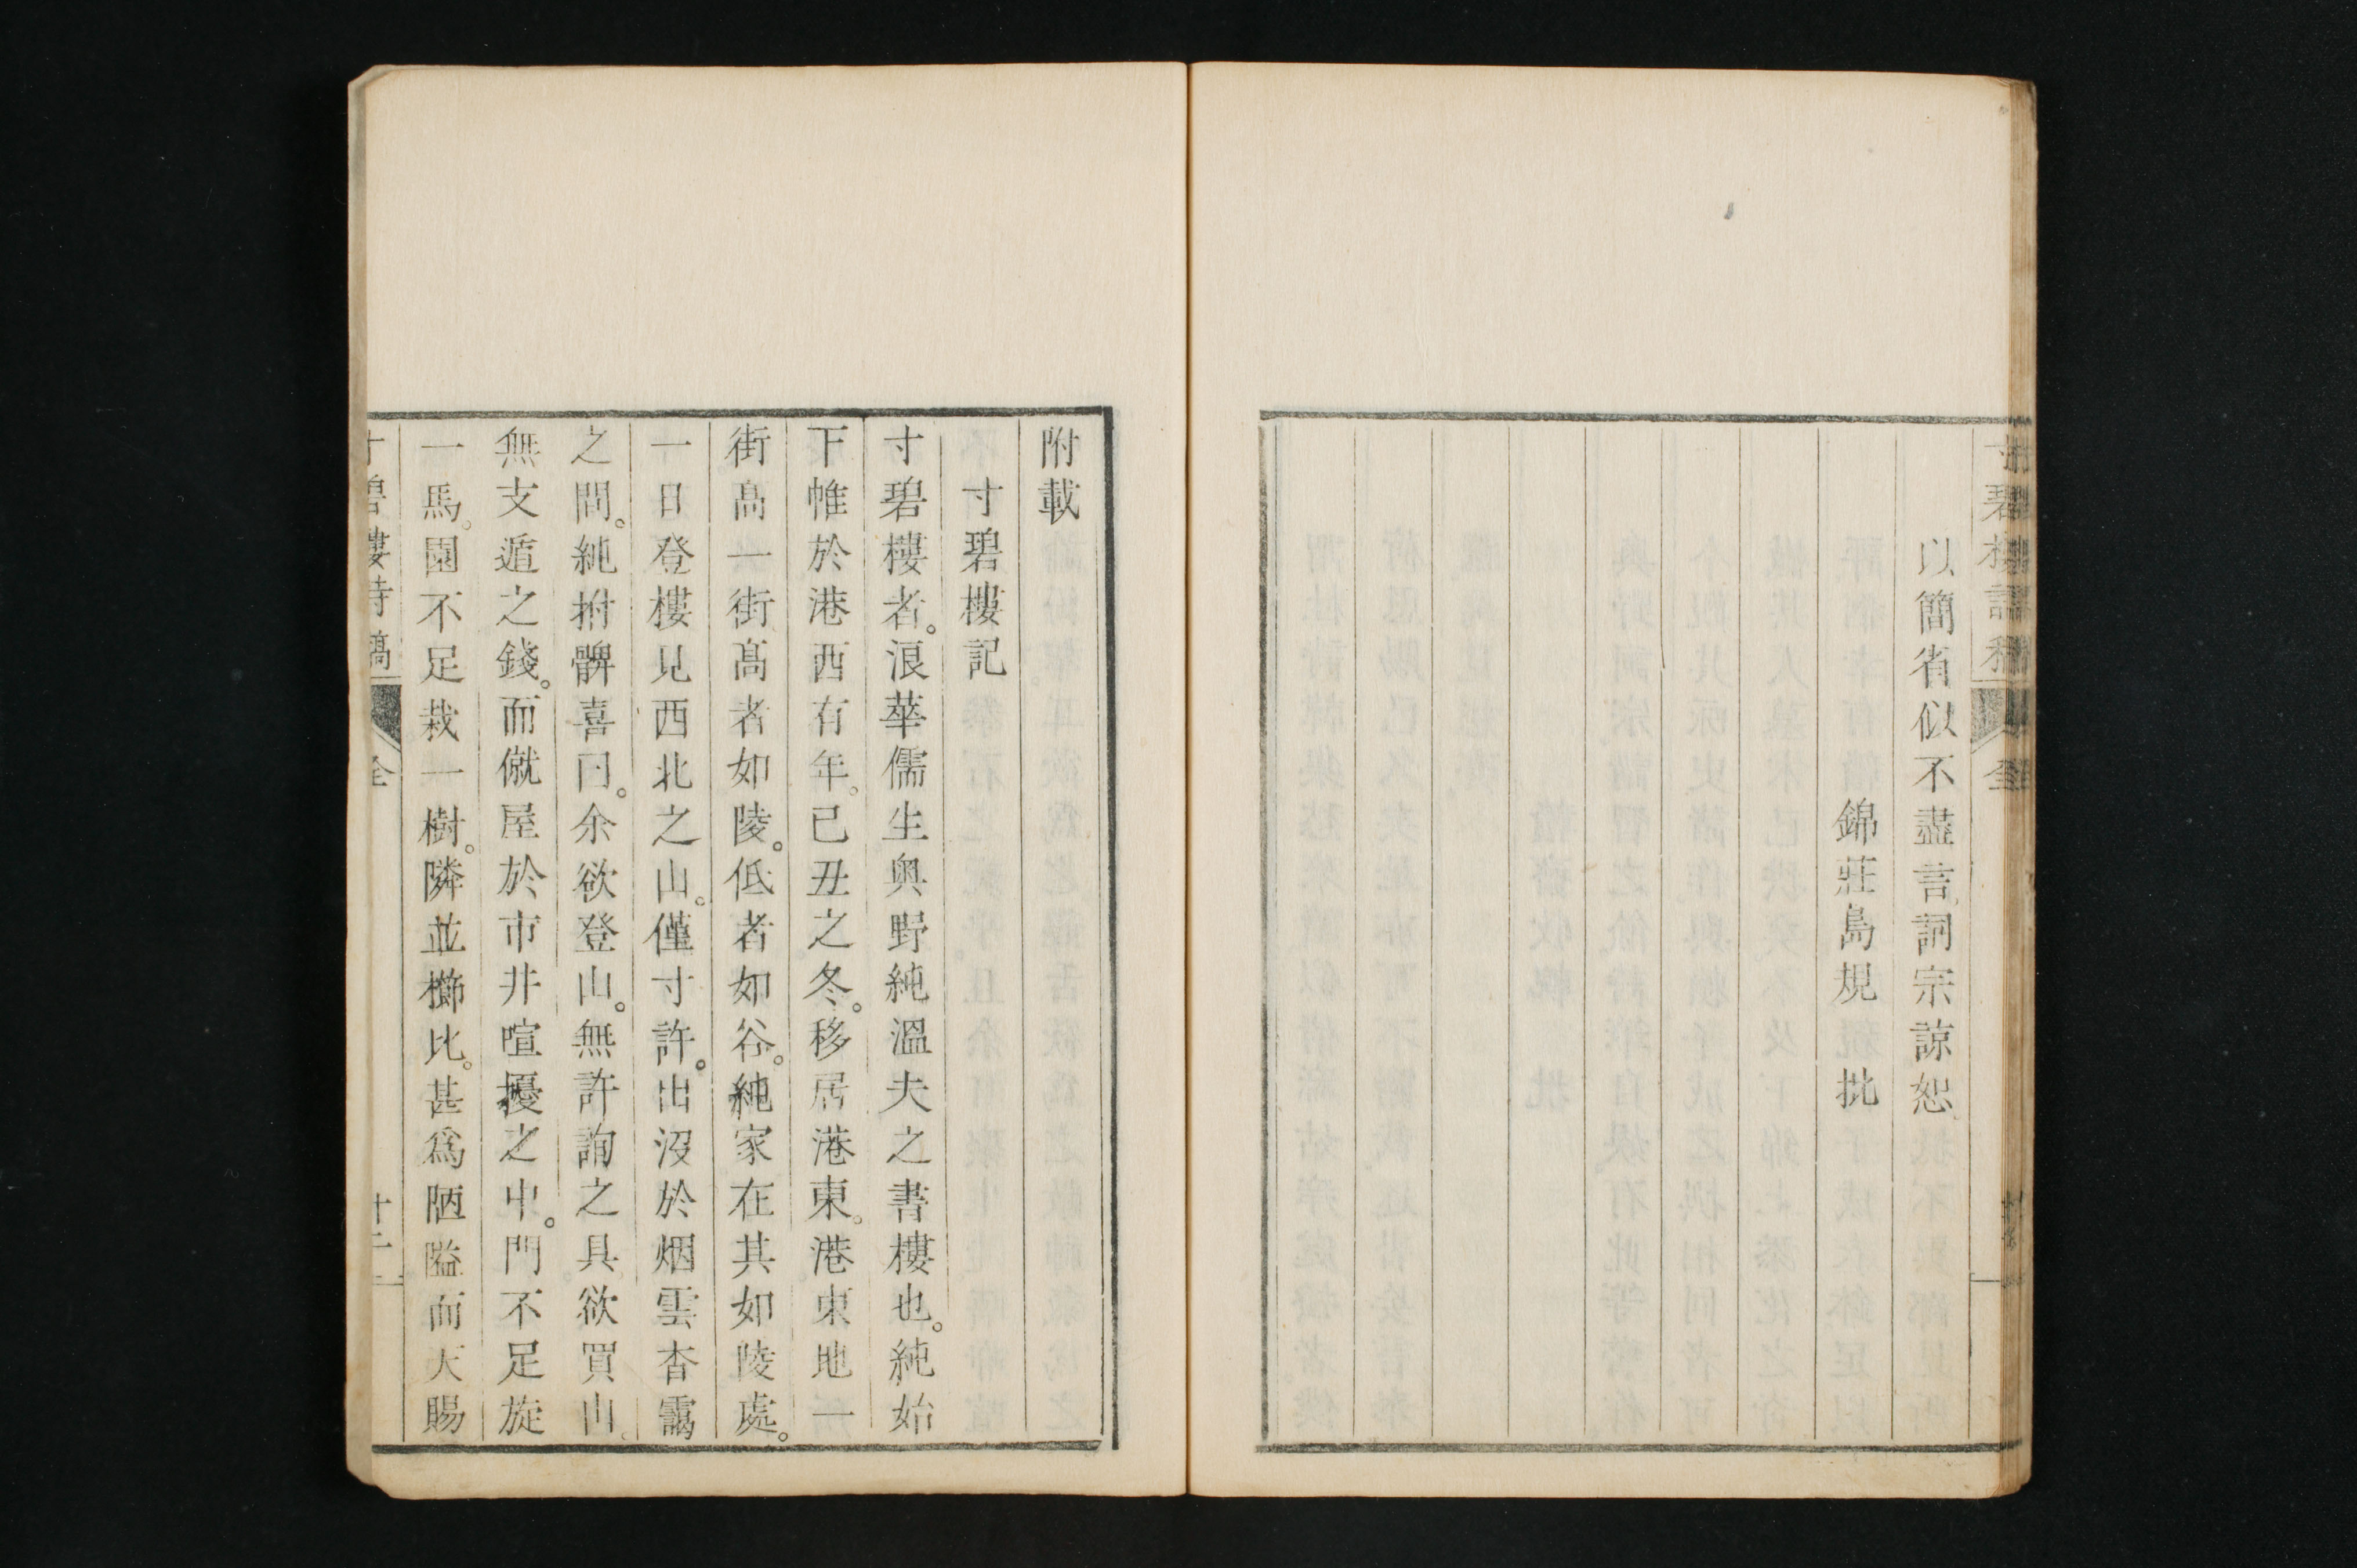 以簡省似不盡言詞宗諒恕
錦莊島規批
附載
寸碧樓記
寸碧樓者。浪華儒生奥野純溫夫之書樓也。純始
下帷於港西有年。己丑之冬。移居港東。港東地一
街高一街高者如陵。低者如谷。純家在其如陵處。
一日登樓見西北之山。僅寸許。出沒於烟雲杳靄
之間。純拊髀喜曰。余欲登山。無許詢之具。欲買山。
無支遁之錢。而僦屋於市井喧擾之中。門不足旋
一馬。園不足栽一樹。隣並櫛比。甚爲陋隘而天賜
寸碧樓詩稿 全 十二